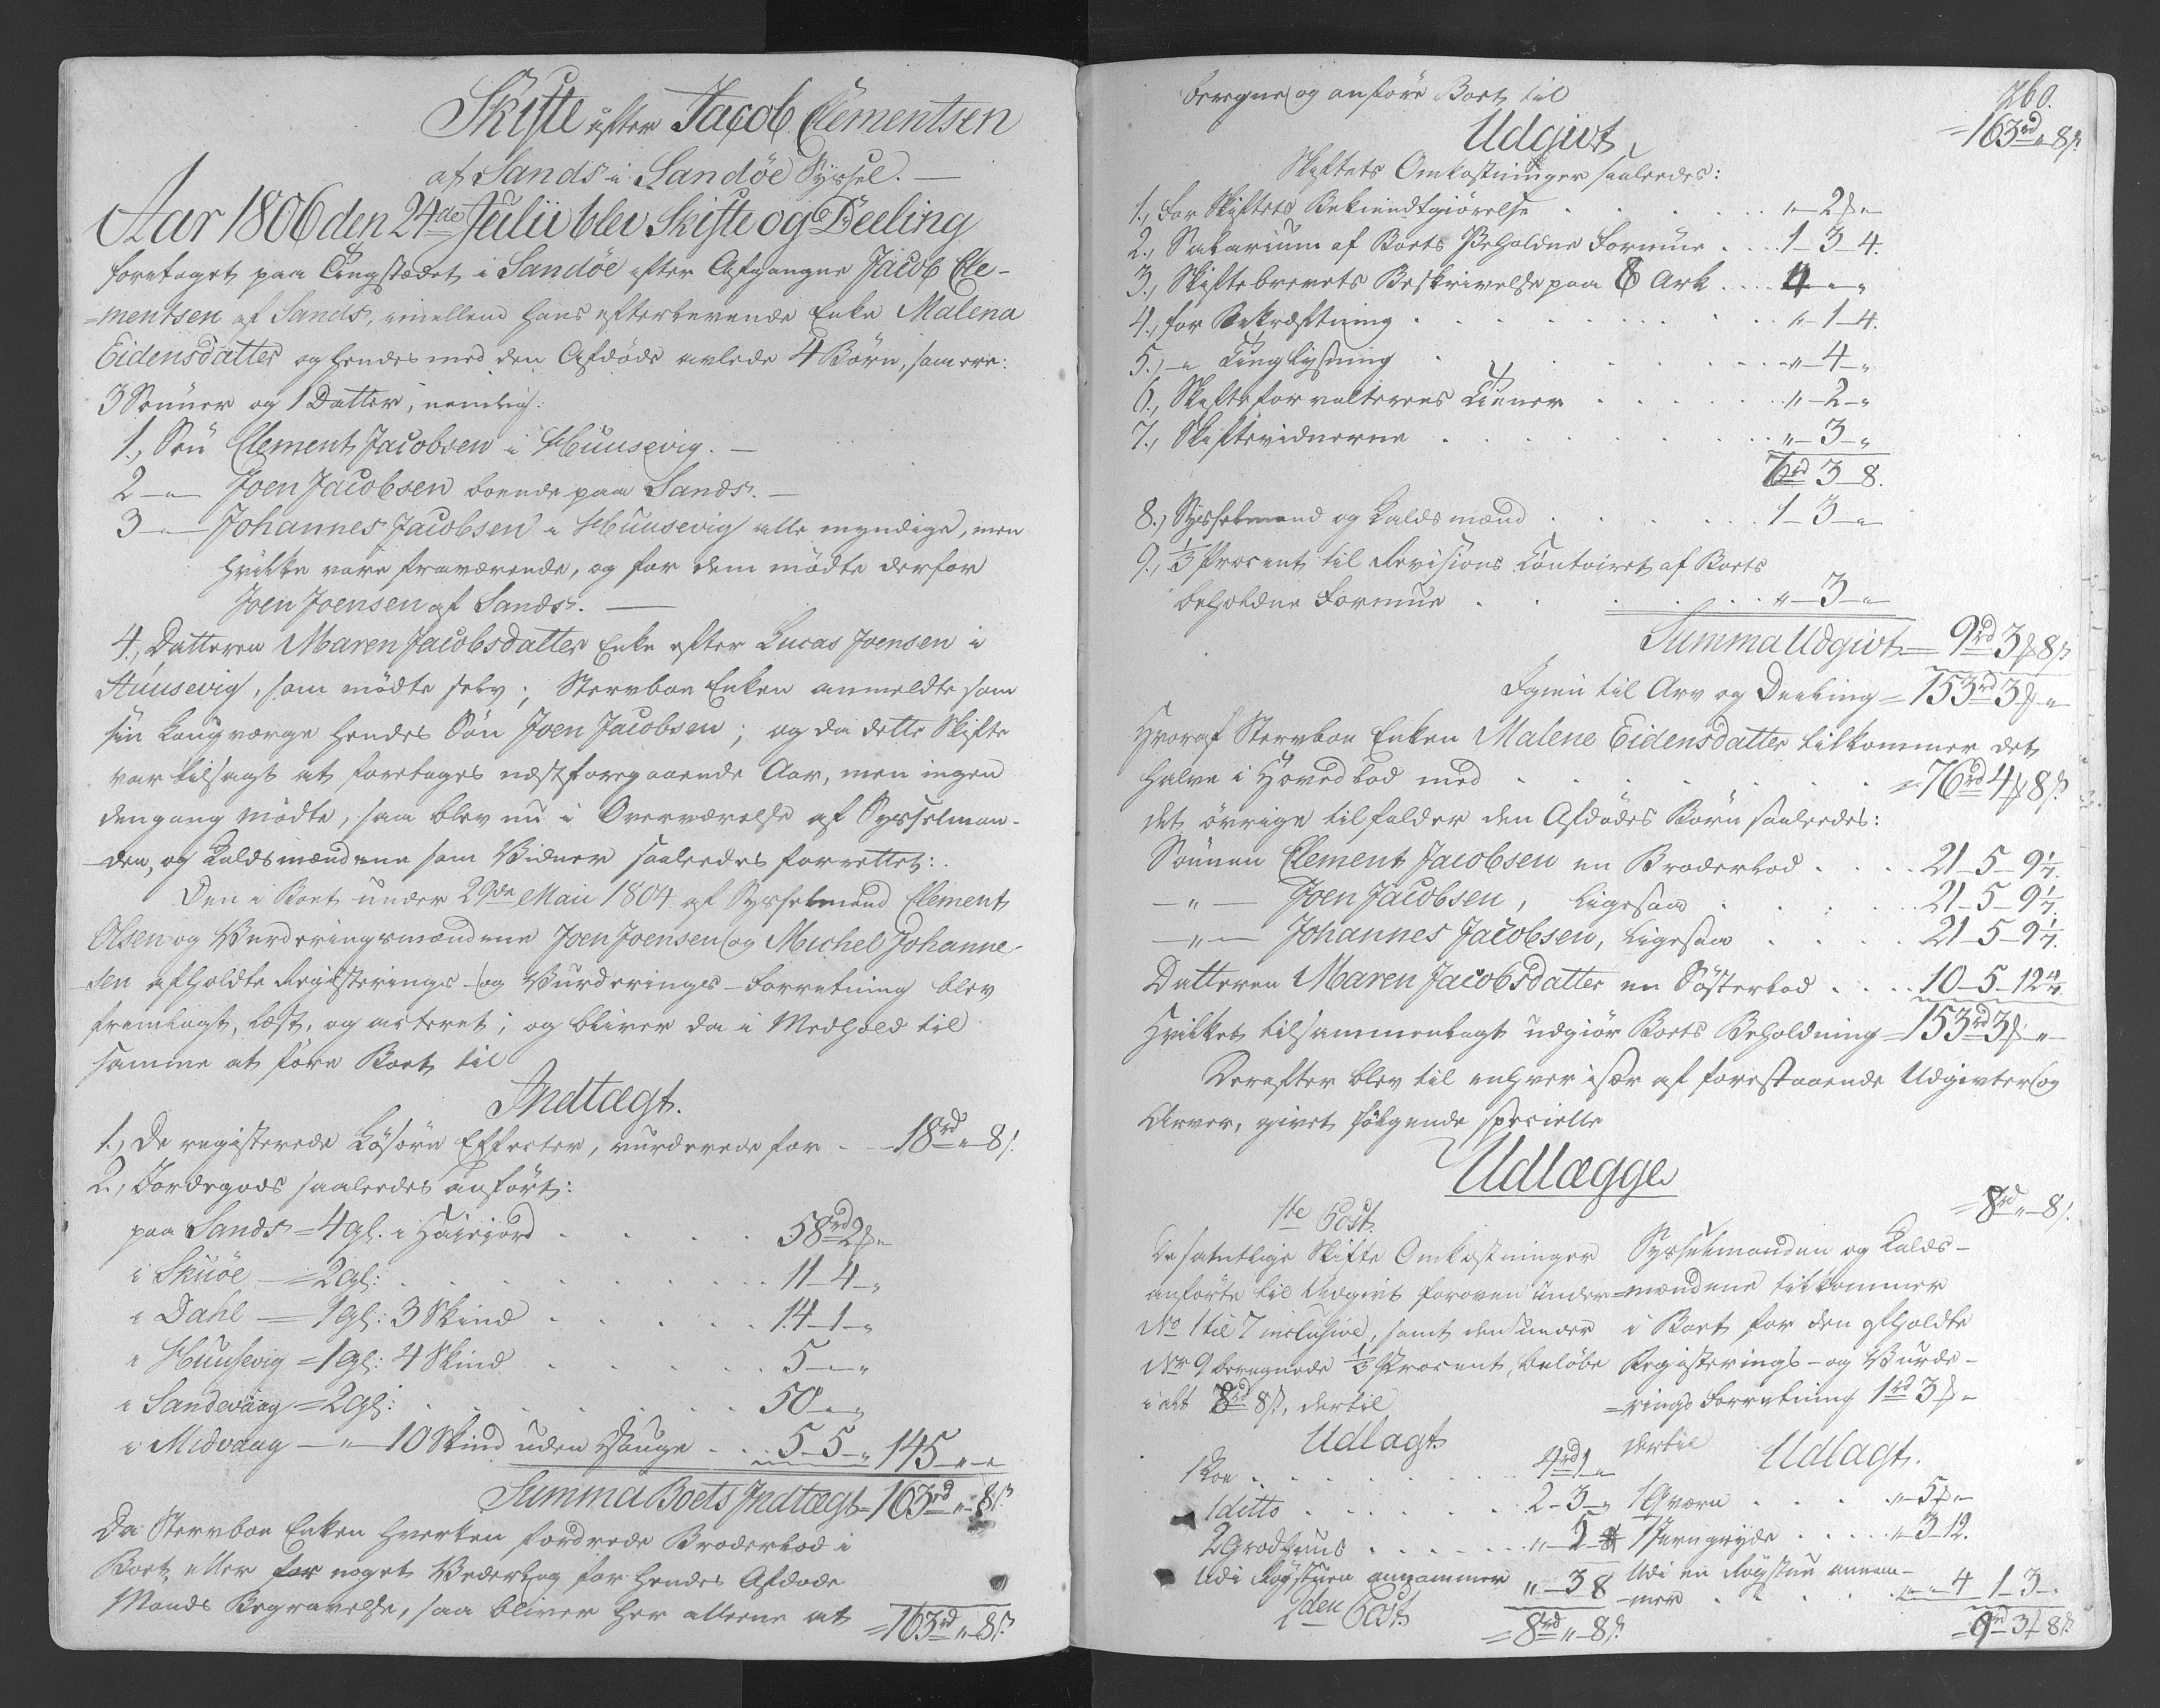 Skifte efter Jacob Clementsen
af Sands i Sandöe Syssel. —
Aar 1806 den 24de Julii blev Skifte og Deeling
foretaget paa Tingstædet i Sandöe efter Afgangne Jacob Cle-
=mentsen af Sands, imellem hans efterlevende Enke Malena
Eidensdatter og hendes med den Afdöde avlede 4 Börn, som ere:
3 Sönner og 1 Datter, nemlig:
1., Sön Clement Jacobsen i Huusevig. —
2 —"— Joen Jacobsen boende paa Sands. —
3 —"— Johannes Jacobsen i Huusevig alle myndige, men
hvilke vare fraværende, og for dem mödte derfor
Joen Joensen af Sands. —
4., Datteren Maren Jacobsdatter Enke efter Lucas Joensen i
Huusevig, som mödte selv; Stervboe Enken anmeldte som
sin Laugværge hendes Sön Joen Jacobsen; og da dette Skifte
var tilsagt at foretages næstforegaaende Aar, men ingen
dengang mödte, saa blev nu i Overværelse af Sysselman-
den, og Kaldsmændene som Vidner saaledes forrettet:
Den i Boet under 29de Maii 1804 af Sysselmand Clement
Olsen og Vurderingsmændene Joen Joensen og Michel Johanne-
sen afholdte Registerings- og Vurderings-Forretning blev
fremlagt, læst, og acteret; og bliver da i Medhold til
samme at före Boet til
Indtægt.
1., De registerede Lösöre Effecter, vurderede for — 18rd " 8 s.
2., Jordegods saaledes anfört:
paa Sands = 4 gl. i . . . . 58rd 2 "
i Skuöe — = 2 gl: . . . . 11-4-"
i Dahl — = 1 gl: 3 Skind . . . . 14-1-"
i Huusevig = 1 gl: 4 Skind . . . . 5-"-"
i Sandevaag = 2 gl: . . . . 50-"-"
i Midvaag — " — 10 Skind uden Hauge . . . 5-5-" 145-"-"
Summa Boets Indtægt = 163rd " 8 s.
Da Stervboe Enken hverken fordrede Broderlod i
Boet eller for noget Vederlag for hendes Afdöde
Mands Begravelse, saa bliver her alleene at = 163rd " 8 s.
260.
beregne og anföre Boet til = 163rd " 8 s.
Udgivt
Skiftets Omkostninger saaledes:
1., For Skiftets Bekiendtgiörelse . . . . " - 2 "
2., Salarium af Boets Beholdne Formue . . . 1-3-4.
3., Skiftebrevets Beskrivelse paa 8 Ark . . . 4-"-"
4., for Bekræftning . . . . "-1-4.
5., —"— Tinglysning . . . . "-4-"
6., Skifteforvalterens Tiener . . . . "-2-"
7., Skiftevidnerne . . . . "-3-"
7rd 3-8.
8., Sysselmand og Kaldsmænd . . . . 1-3-"
9., 1/3 Procent til Revisions Contoiret af Boets
beholdne Formue . . . . "-3-"
Summa Udgivt = 9rd 3 8 s
Igien til Arv og Deeling = 153rd 3 "
Hvoraf Stervboe Enken Malene Eidensdatter tilkommer det
halve i Hovedlod med . . . . = 76rd 4 8 s.
det övrige tilfalder den Afdödes Börn saaledes:
Sönnen Clement Jacobsen en Broderlod . . . 21-5-9 1/7.
—"— Joen Jacobsen, ligesaa . . . 21-5-9 1/7.
—"— Johannes Jacobsen, ligesaa . . . 21-5-9 1/7.
Datteren Maren Jacobsdatter en Sösterlod . . . 10-5-12 4/7.
Hvilket tilsammenlagt udgiör Boets Beholdning = 153rd 3 "
Derefter blev til enhver især af forestaaende Udgivter og
Arver, givet fölgende specielle
Udlægge
1te Post. = 8rd " 8 s.
De samtlige Skifte Omkostninger
anförte til Udgivt foroven under
No 1 til 7 inclusive, samt den under
No 9 beregnede 1/3 Procent, belöbe
i alt 8rd 8 s, dertil
Udlagt
1 Koe . . . . 4rd 1 "
1 ditto . . . . 2-3-"
2 . . . . "-5
Udi Rögstuen annammer "-3 8
= 8rd " 8 s.
2den Post.
Sysselmanden og Kalds-
=mændene tilkommer
i Boet for den afholdte
Registerings- og Vurde-
=rings Forretning 1rd 3 "
dertil Udlagt.
1 Qværn . . . "-5 "
1 Jerngryde . . . "-3-12.
Udi en Rögstue annam-
mer . . . "-"-4 1-3-"
= 9rd 3 8 s.